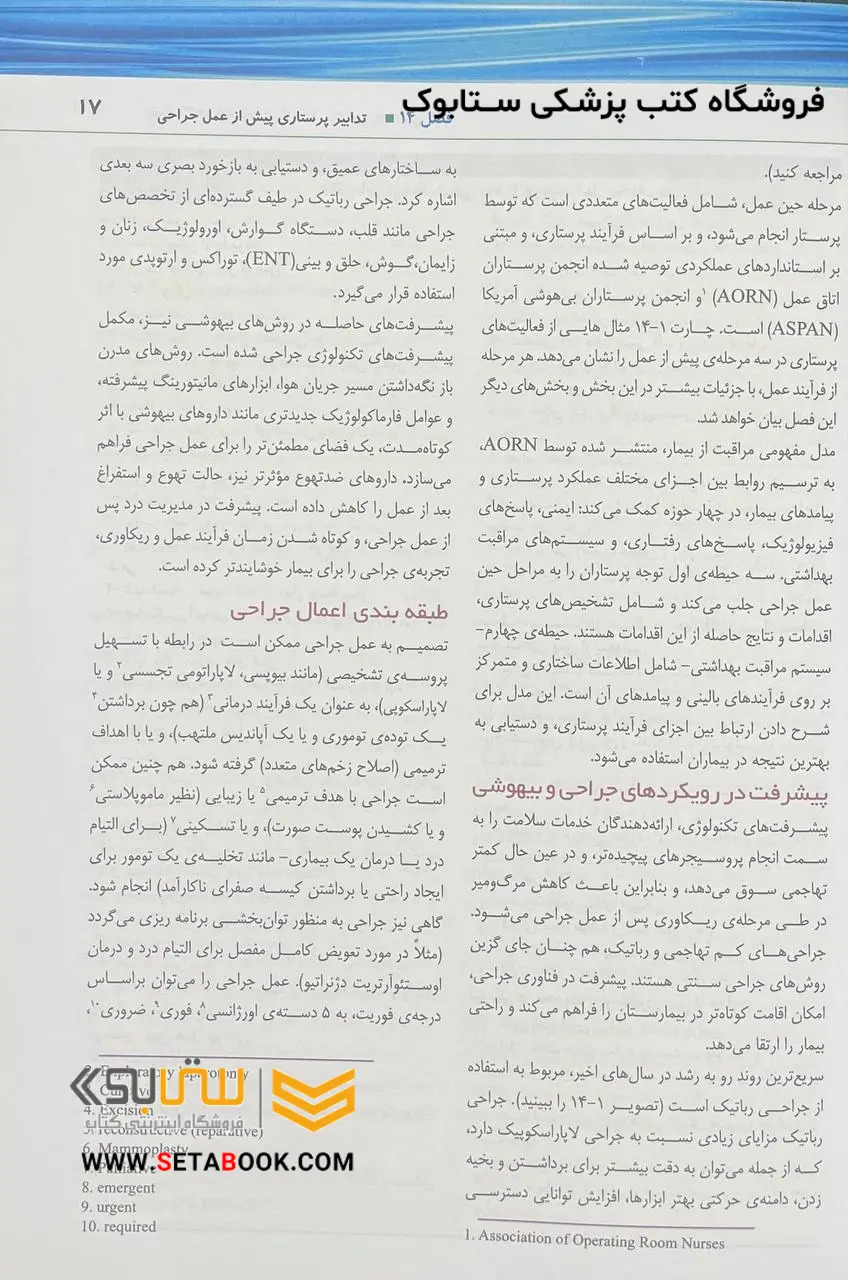 فروشگاه کتب پزشکی ستابوک
فصل ۱۴ ■ تدابیر پرستاری پیش از عمل جراحی
۱۷
مراجعه کنید).
مرحله حین عمل، شامل فعالیت‌های متعددی است که توسط
پرستار انجام می‌شود، و بر اساس فرآیند پرستاری، و مبتنی
بر استانداردهای عملکردی توصیه شده انجمن پرستاران
اتاق عمل (AORN)۱ و انجمن پرستاران بی‌هوشی آمریکا
(ASPAN) است. چارت ۱-۱۴ مثال هایی از فعالیت‌های
پرستاری در سه مرحله‌ی پیش از عمل را نشان می‌دهد. هر مرحله
از فرآیند عمل، با جزئیات بیشتر در این بخش و بخش‌های دیگر
این فصل بیان خواهد شد.
مدل مفهومی مراقبت از بیمار، منتشر شده توسط AORN،
به ترسیم روابط بین اجزای مختلف عملکرد پرستاری و
پیامدهای بیمار، در چهار حوزه کمک می‌کند: ایمنی، پاسخ‌های
فیزیولوژیک، پاسخ‌های رفتاری، و سیستم‌های مراقبت
بهداشتی. سه حیطه‌ی اول توجه پرستاران را به مراحل حین
عمل جراحی جلب می‌کند و شامل تشخیص‌های پرستاری،
اقدامات و نتایج حاصله از این اقدامات هستند. حیطه‌ی چهارم-
سیستم مراقبت بهداشتی- شامل اطلاعات ساختاری و متمرکز
بر روی فرآیندهای بالینی و پیامدهای آن است. این مدل برای
شرح دادن ارتباط بین اجزای فرآیند پرستاری، و دستیابی به
بهترین نتیجه در بیماران استفاده می‌شود.
پیشرفت در رویکردهای جراحی و بیهوشی
پیشرفت‌های تکنولوژی، ارائه‌دهندگان خدمات سلامت را به
سمت انجام پروسیجرهای پیچیده‌تر، و در عین حال کمتر
تهاجمی سوق می‌دهد، و بنابراین باعث کاهش مرگ‌ومیر
در طی مرحله‌ی ریکاوری پس از عمل جراحی می‌شود.
جراحی‌های کم تهاجمی و رباتیک، هم چنان جای گزین
روش‌های جراحی سنتی هستند. پیشرفت در فناوری جراحی،
امکان اقامت کوتاه‌تر در بیمارستان را فراهم می‌کند و راحتی
بیمار را ارتقا می‌دهد.
سریع‌ترین روند رو به رشد در سال‌های اخیر، مربوط به استفاده
از جراحی رباتیک است (تصویر ۱-۱۴ را ببینید). جراحی
رباتیک مزایای زیادی نسبت به جراحی لاپاراسکوپیک دارد،
که از جمله می‌توان به دقت بیشتر برای برداشتن و بخیه
زدن، دامنه‌ی حرکتی بهتر ابزارها، افزایش توانایی دسترسی
1. Association of Operating Room Nurses
به ساختارهای عمیق، و دستیابی به بازخورد بصری سه بعدی
اشاره کرد. جراحی رباتیک در طیف گسترده‌ای از تخصص‌های
جراحی مانند قلب، دستگاه گوارش، اورولوژیک، زنان و
زایمان،گوش، حلق و بینی(ENT)، توراکس و ارتوپدی مورد
استفاده قرار می‌گیرد.
پیشرفت‌های حاصله در روش‌های بیهوشی نیز، مکمل
پیشرفت‌های تکنولوژی جراحی شده است. روش‌های مدرن
باز نگه‌داشتن مسیر جریان هوا، ابزارهای مانیتورینگ پیشرفته،
و عوامل فارماکولوژیک جدیدتری مانند داروهای بیهوشی با اثر
کوتاه‌مدت، یک فضای مطمئن‌تر را برای عمل جراحی فراهم
می‌سازد. داروهای ضدتهوع مؤثرتر نیز، حالت تهوع و استفراغ
بعد از عمل را کاهش داده است. پیشرفت در مدیریت درد پس
از عمل جراحی، و کوتاه شدن زمان فرآیند عمل و ریکاوری،
تجربه‌ی جراحی را برای بیمار خوشایندتر کرده است.
طبقه بندی اعمال جراحی
تصمیم به عمل جراحی ممکن است در رابطه با تسهیل
پروسه‌ی تشخیصی (مانند بیوپسی، لاپاراتومی تجسسی۲ و یا
لاپاراسکوپی)، به عنوان یک فرآیند درمانی۳ (هم چون برداشتن۴
یک توده‌ی توموری و یا یک آپاندیس ملتهب)، و یا با اهداف
ترمیمی (اصلاح زخم‌های متعدد) گرفته شود. هم چنین ممکن
است جراحی با هدف ترمیمی۵ یا زیبایی (نظیر ماموپلاستی۶
و یا کشیدن پوست صورت)، و یا تسکینی۷ (برای التیام
درد یا درمان یک بیماری- مانند تخلیه‌ی یک تومور برای
ایجاد راحتی یا برداشتن کیسه صفرای ناکارآمد) انجام شود.
گاهی نیز جراحی به منظور توان‌بخشی برنامه ریزی می‌گردد
(مثلاً در مورد تعویض کامل مفصل برای التیام درد و درمان
اوستئوآرتریت دژنراتیو). عمل جراحی را می‌توان براساس
درجه‌ی فوریت، به ۵ دسته‌ی اورژانسی۸، فوری۹، ضروری۱۰،
2. Exploratory laparotomy
4. Excision
5. reconstructive (reparative)
6. Mammoplasty
7. Palliative
8. emergent
9. urgent
10. required
ستابوک
فروشگاه اینترنتی کتاب
WWW.SETABOOK.COM